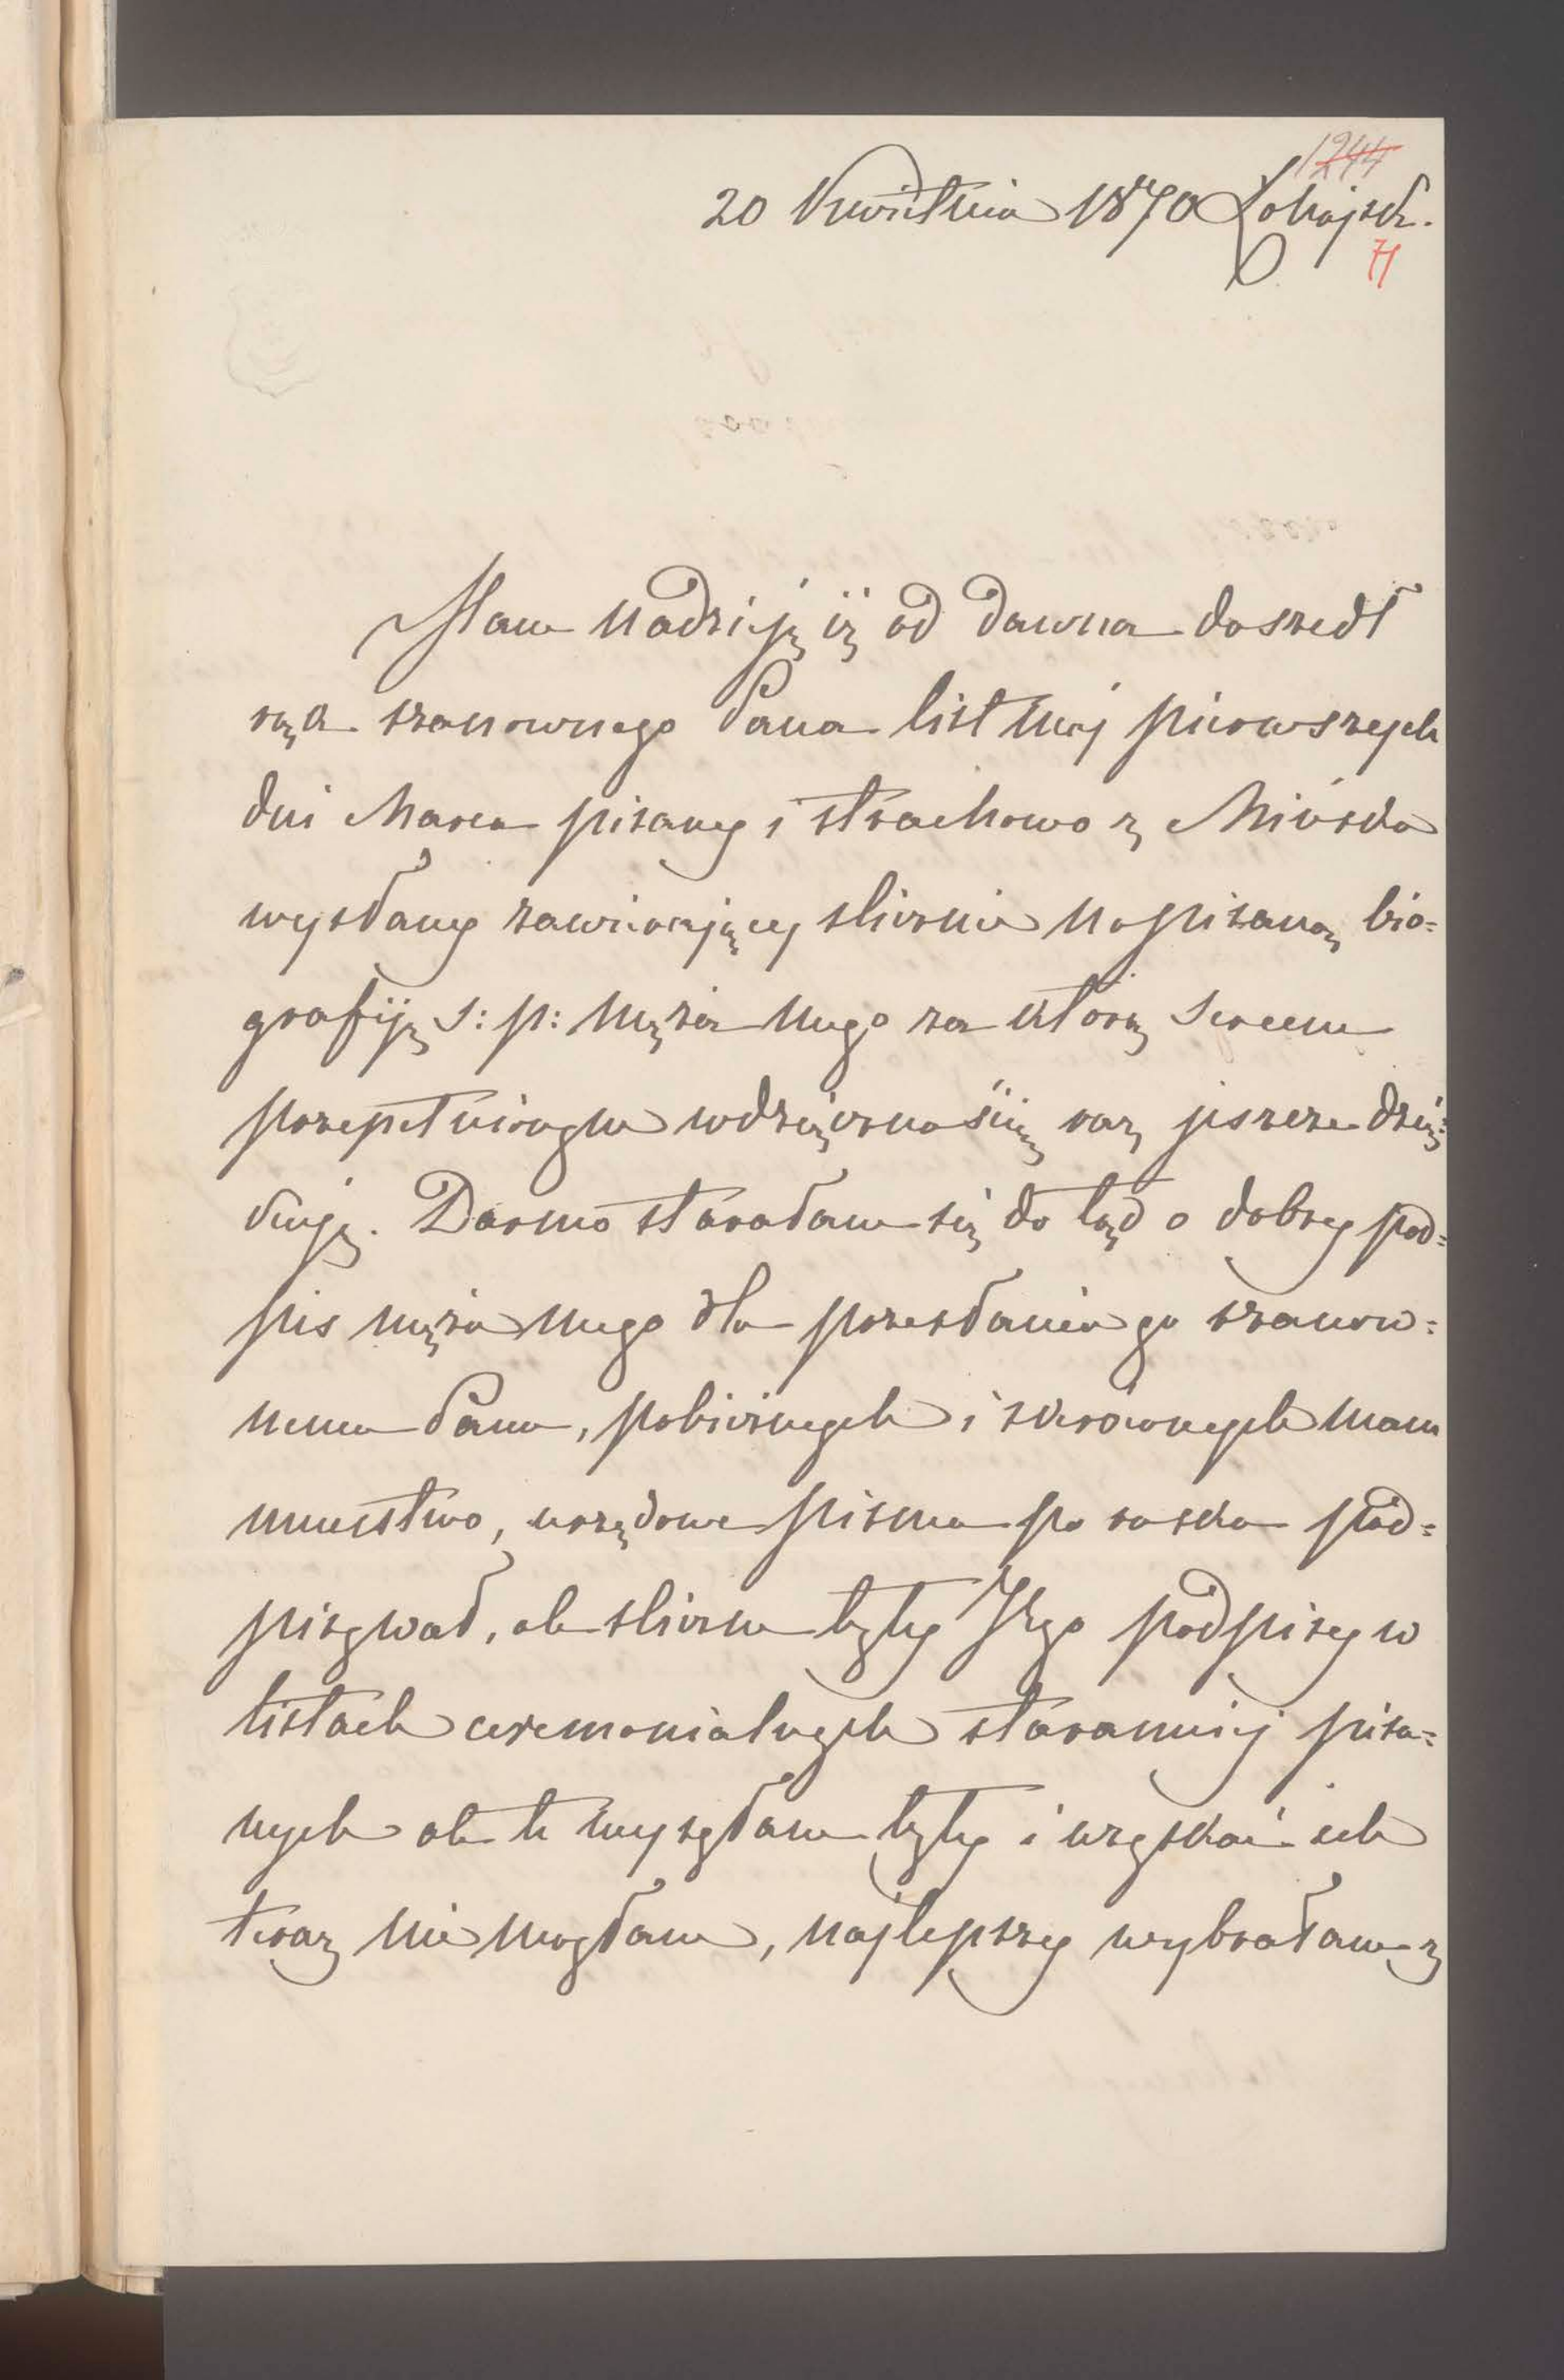 1244
20 Kwietnia 1870 Łohojsk.
71
Mam nadzieję iż od dawna doszedł
rąk szanownego Pana list mój pierwszych
dni Marca pisany i strachowo z Mińska
wysłany zawierający ślicznie napisaną bio=
grafiję s: p: męża mego za którą sercem
przepełnionym wdzięcznością raz jeszcze dzię=
kuję. Darmo starałam się do tąd o dobry pod=
pis męża mego dla przesłania go szanow=
nemu Panu, pobieżnych i skróconych mam
mnóstwo, urzędowe pisma po rusku pod=
pisywał, ale śliczne były Jego podpisy w
listach ceremonialnych staranniej pisa=
nych ale te wysyłane były i uzyskać ich
teraz nie mogłam, najlepszy wybrałam z